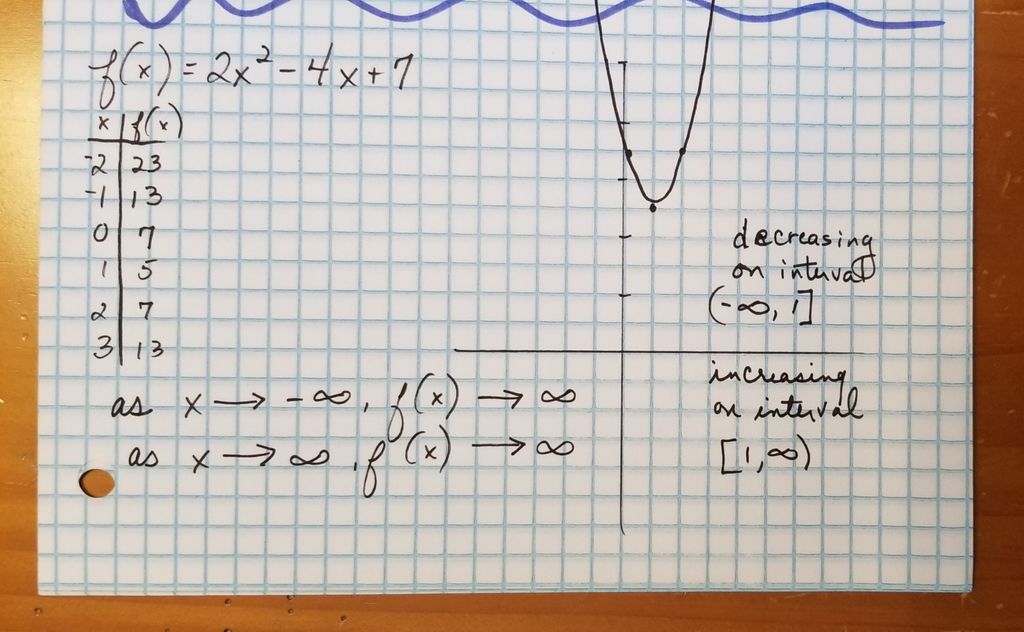 f(x) = 2x² - 4x + 7
x | f(x)
-2 | 23
-1 | 13
0 | 7
1 | 5
2 | 7
3 | 13
as x → -∞, f(x) → ∞
as x → ∞, f(x) → ∞
decreasing
on interval
(-∞, 1]
increasing
on interval
[1, ∞)